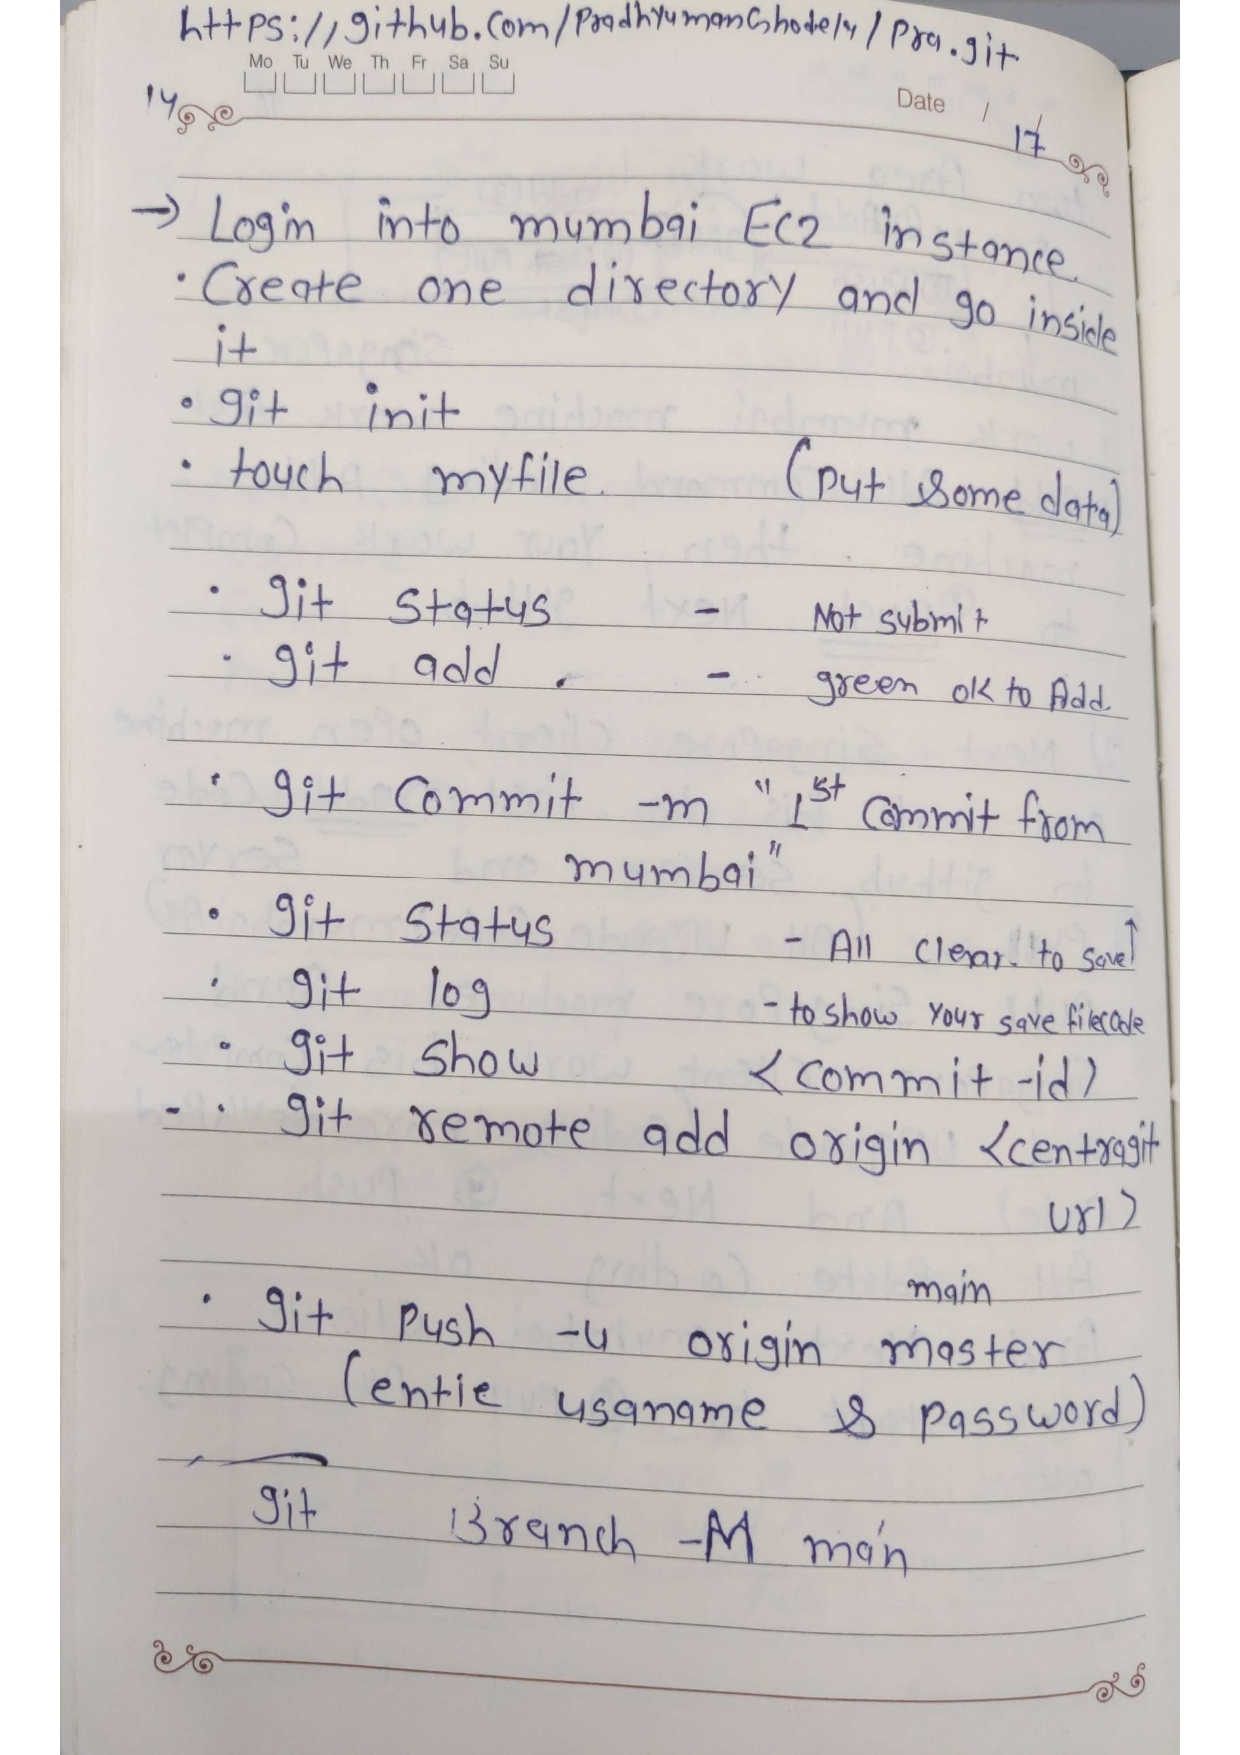 https://github.com/PradhyumanGhodely/pra.git
Mo Tu We Th Fr Sa Su
Date / /
14
17
→ Login into mumbai EC2 instance.
• Create one directory and go inside
it
• git init
• touch myfile. (put some data)
• git status - Not submit
• git add . - green ok to Add.
• git Commit -m "1st Commit from
mumbai"
• git status - All clear. to save↑
• git log - to show your save filecode
• git show <commit-id>
- • git remote add origin <centragit
url>
main
• git push -u origin master
(entie usaname & password)
git Branch -M main